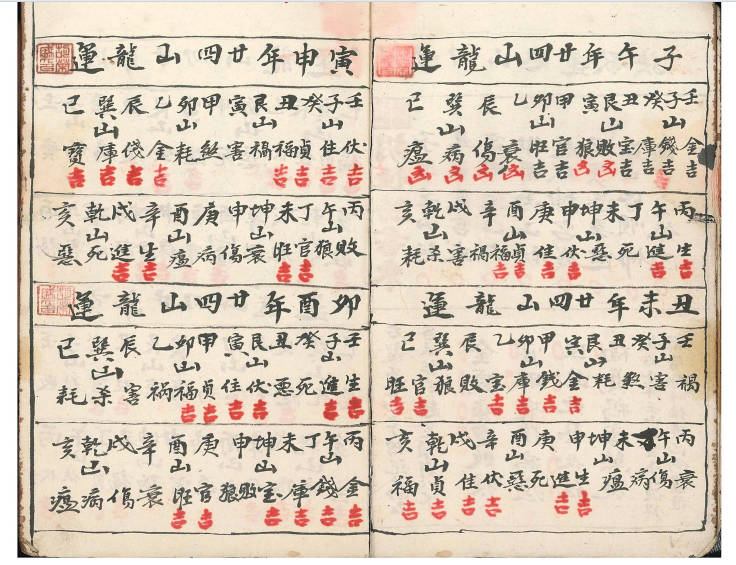 子午年廿四山龍運
壬子癸丑艮寅甲卯乙辰巽巳
山山山山
金錢庫宝敗狼官旺衰傷病瘟
吉吉吉吉凶凶吉吉凶凶凶凶
丙午丁未坤申庚酉辛戌乾亥
山山山山
生進死惡伏佳貞福禍害杀耗
吉吉吉吉吉吉
丑未年廿四山龍運
壬子癸丑艮寅甲卯乙辰巽巳
山山山山
禍害煞耗金錢庫宝敗狼官旺
吉吉吉吉吉吉
丙午丁未坤申庚酉辛戌乾亥
山山山山
衰傷病瘟生進死惡伏佳貞福
吉吉吉吉吉吉
寅申年廿四山龍運
壬子癸丑艮寅甲卯乙辰巽巳
山山山山
伏住貞福禍害煞耗金錢庫寳
吉吉吉吉吉吉吉吉
丙午丁未坤申庚酉辛戌乾亥
山山山山
敗狼官旺衰傷病瘟生進死惡
吉吉吉吉
卯酉年廿四山龍運
壬子癸丑艮寅甲卯乙辰巽巳
山山山山
生進死惡伏住貞福祸害杀耗
吉吉吉吉吉吉
丙午丁未坤申庚酉辛戌乾亥
山山山山
金錢庫宝敗狼官旺衰傷病瘟
吉吉吉吉吉吉